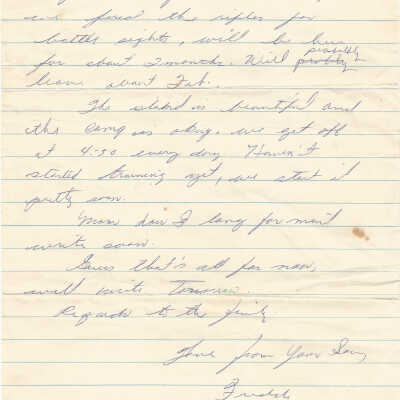 we fired the rifles for
battle sights, will be here
for about 2 months. Will probably probably
leave about Feb.
The island is beautiful and
the camp is okay. we get off
at 4:30 every day. Haven't
started training yet, we start it
pretty soon.
Mom do I long for mail
write soon.
Guess that's all for now,
will write Tomorrow.
Regards to the family
Love from Your Son,